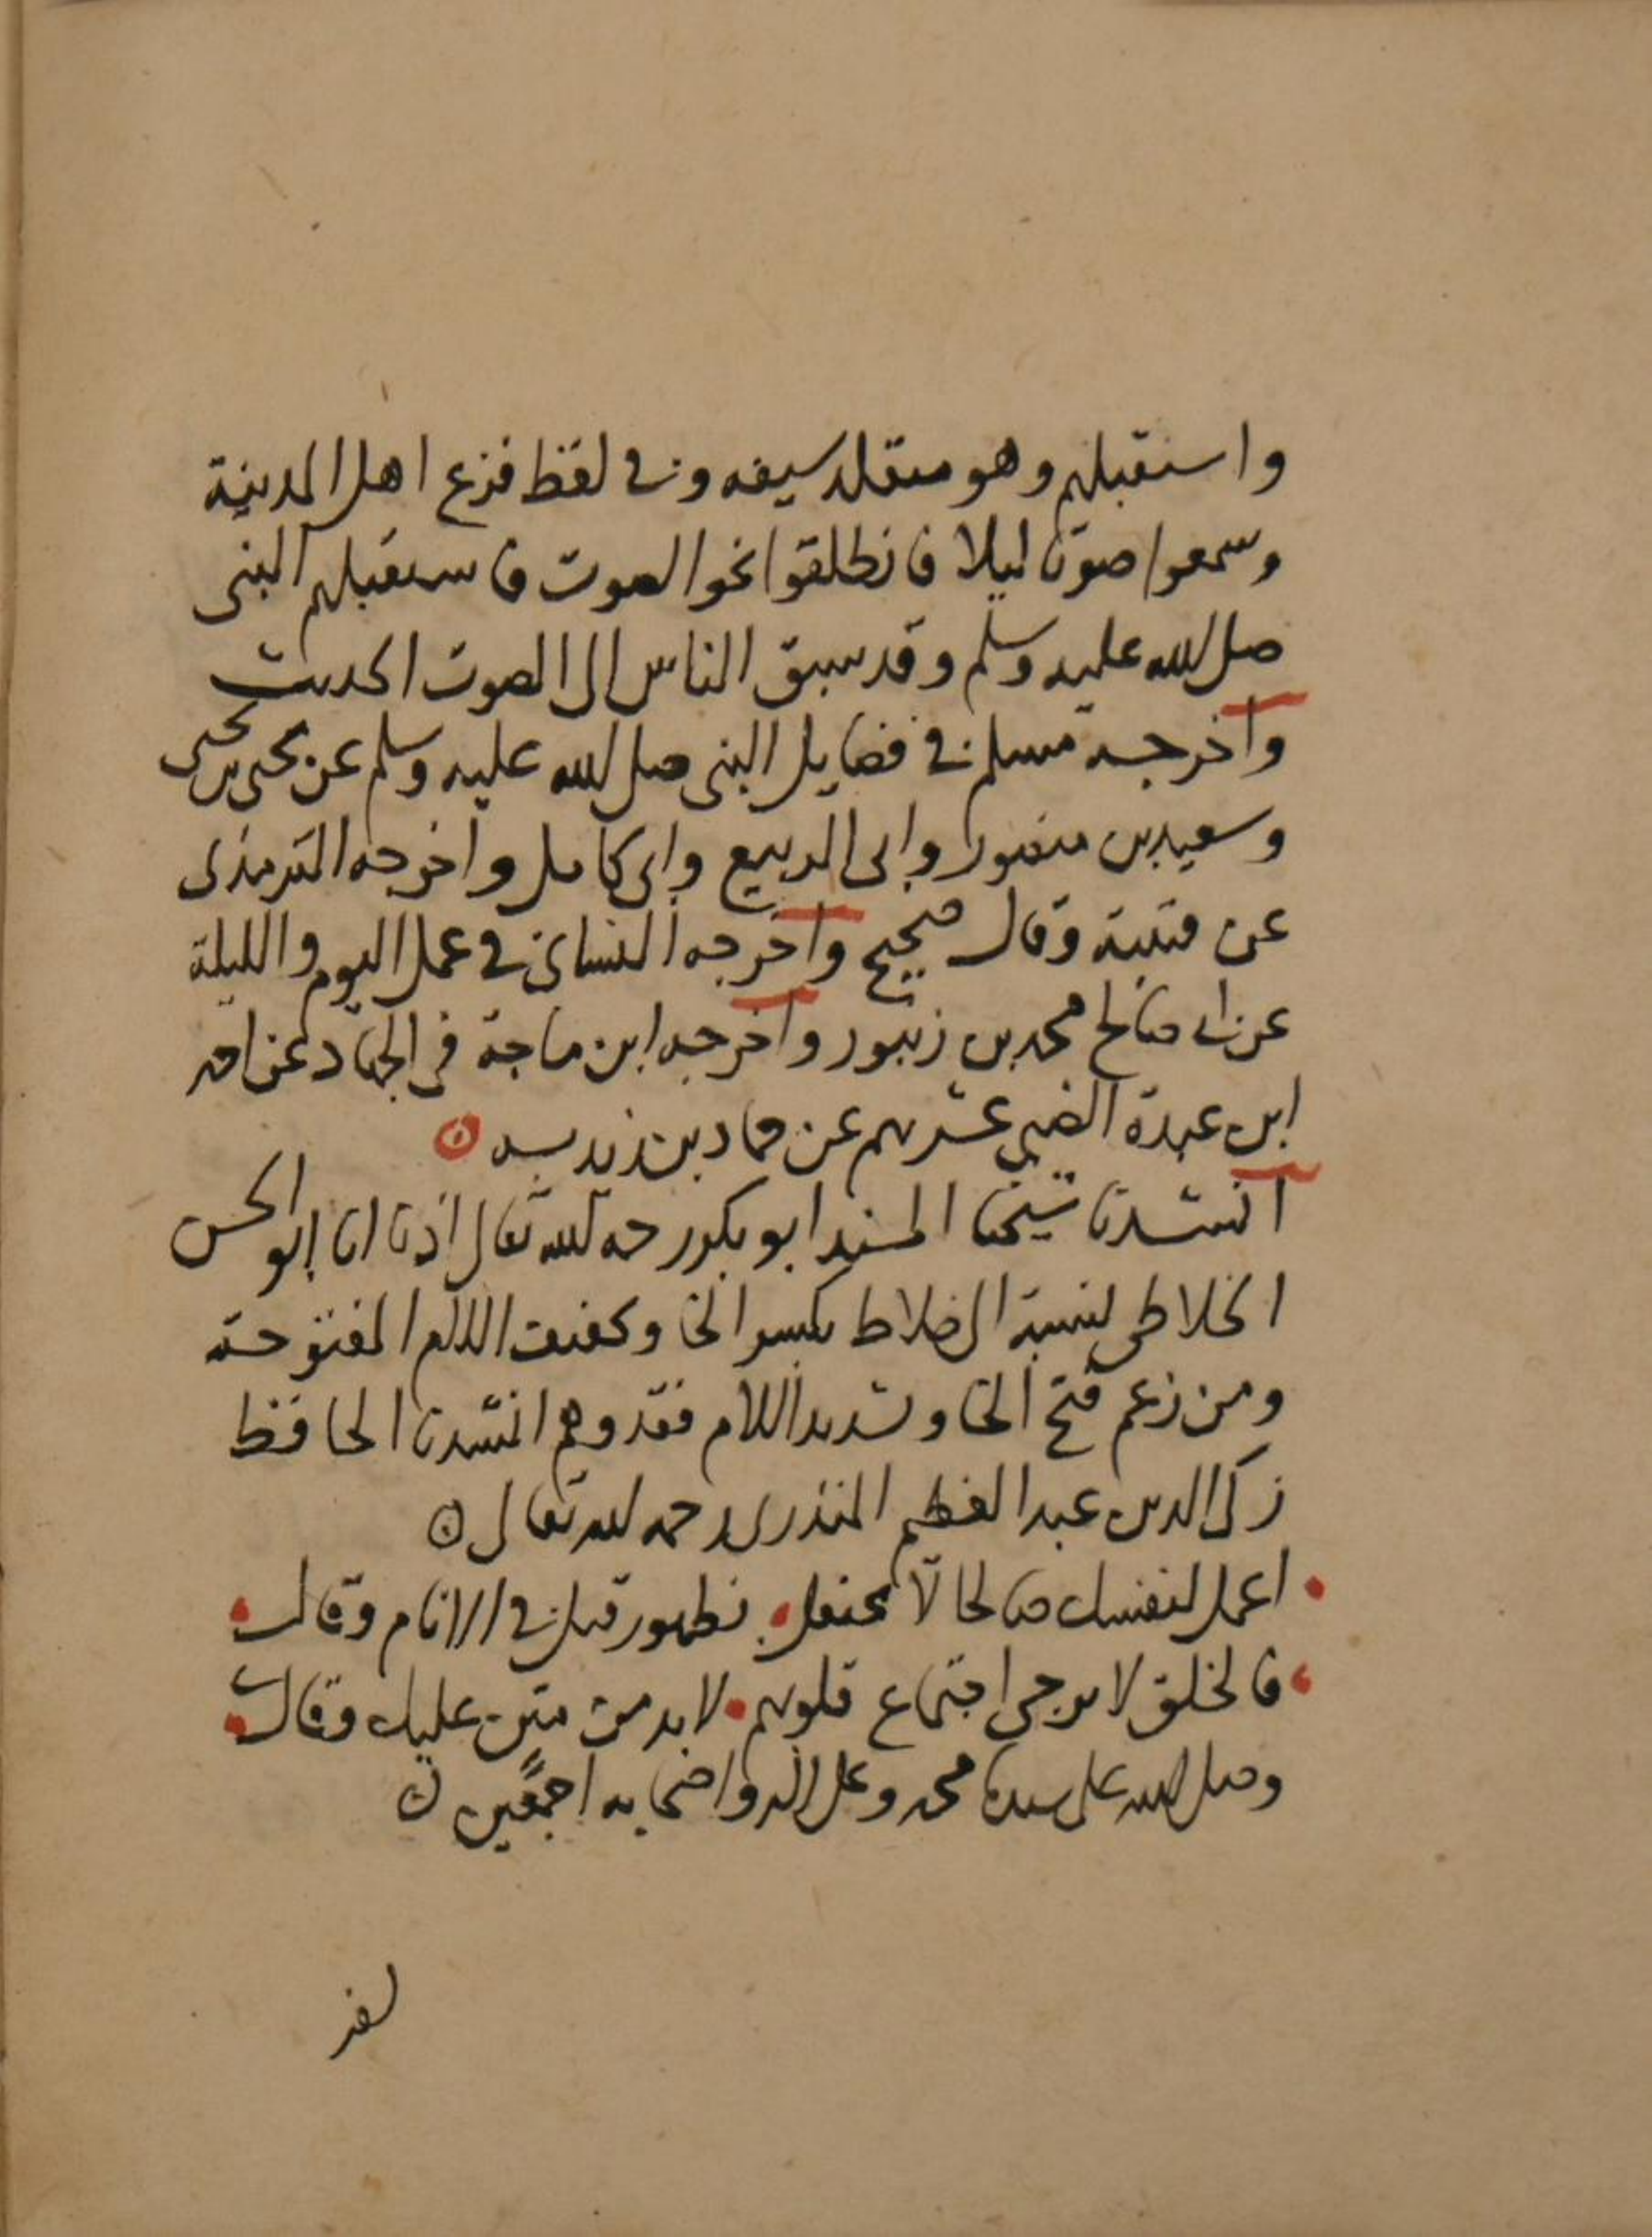 واستقبلهم وهو متقلد سيفه وفي لفظ فزع اهل المدينة
وسمعوا صوتا ليلا فانطلقوا نحو الصوت فاستقبلهم النبى
صلى الله عليه وسلم وقد سبق الناس الى الصوت الحديث
واخرجه مسلم في فضايل النبى صلى الله عليه وسلم عن يحيى بن يحيى
وسعيد بن منصور وابى الربيع وابى كامل واخرجه الترمذى
عن قتيبة وقال صحيح واخرجه النساى في عمل اليوم والليلة
عن ابى صالح محمد بن زنبور واخرجه ابن ماجة في الجهاد عن احمد
ابن عبدة الضبي عشرتهم عن حماد بن زيد به
انشدنا شيخنا المسند ابو بكر رحمه الله تعالى اذنا انا ابو الحسن
الخلاطى لنسبة الى خلاط بكسر الخا وتخفيف اللام المفتوحة
ومن زعم فتح الخا وتشديد اللام فقد وهم انشدنا الحافظ
زكى الدين عبد العظيم المنذرى رحمه الله تعالى
اعمل لنفسك صالحا لا تحتفل بظهور قيل في الانام وقال
فالخلق لا يرجى اجتماع قلوبهم لابد من مثن عليك وقال
وصلى الله على سيدنا محمد وعلى اله واصحابه اجمعين